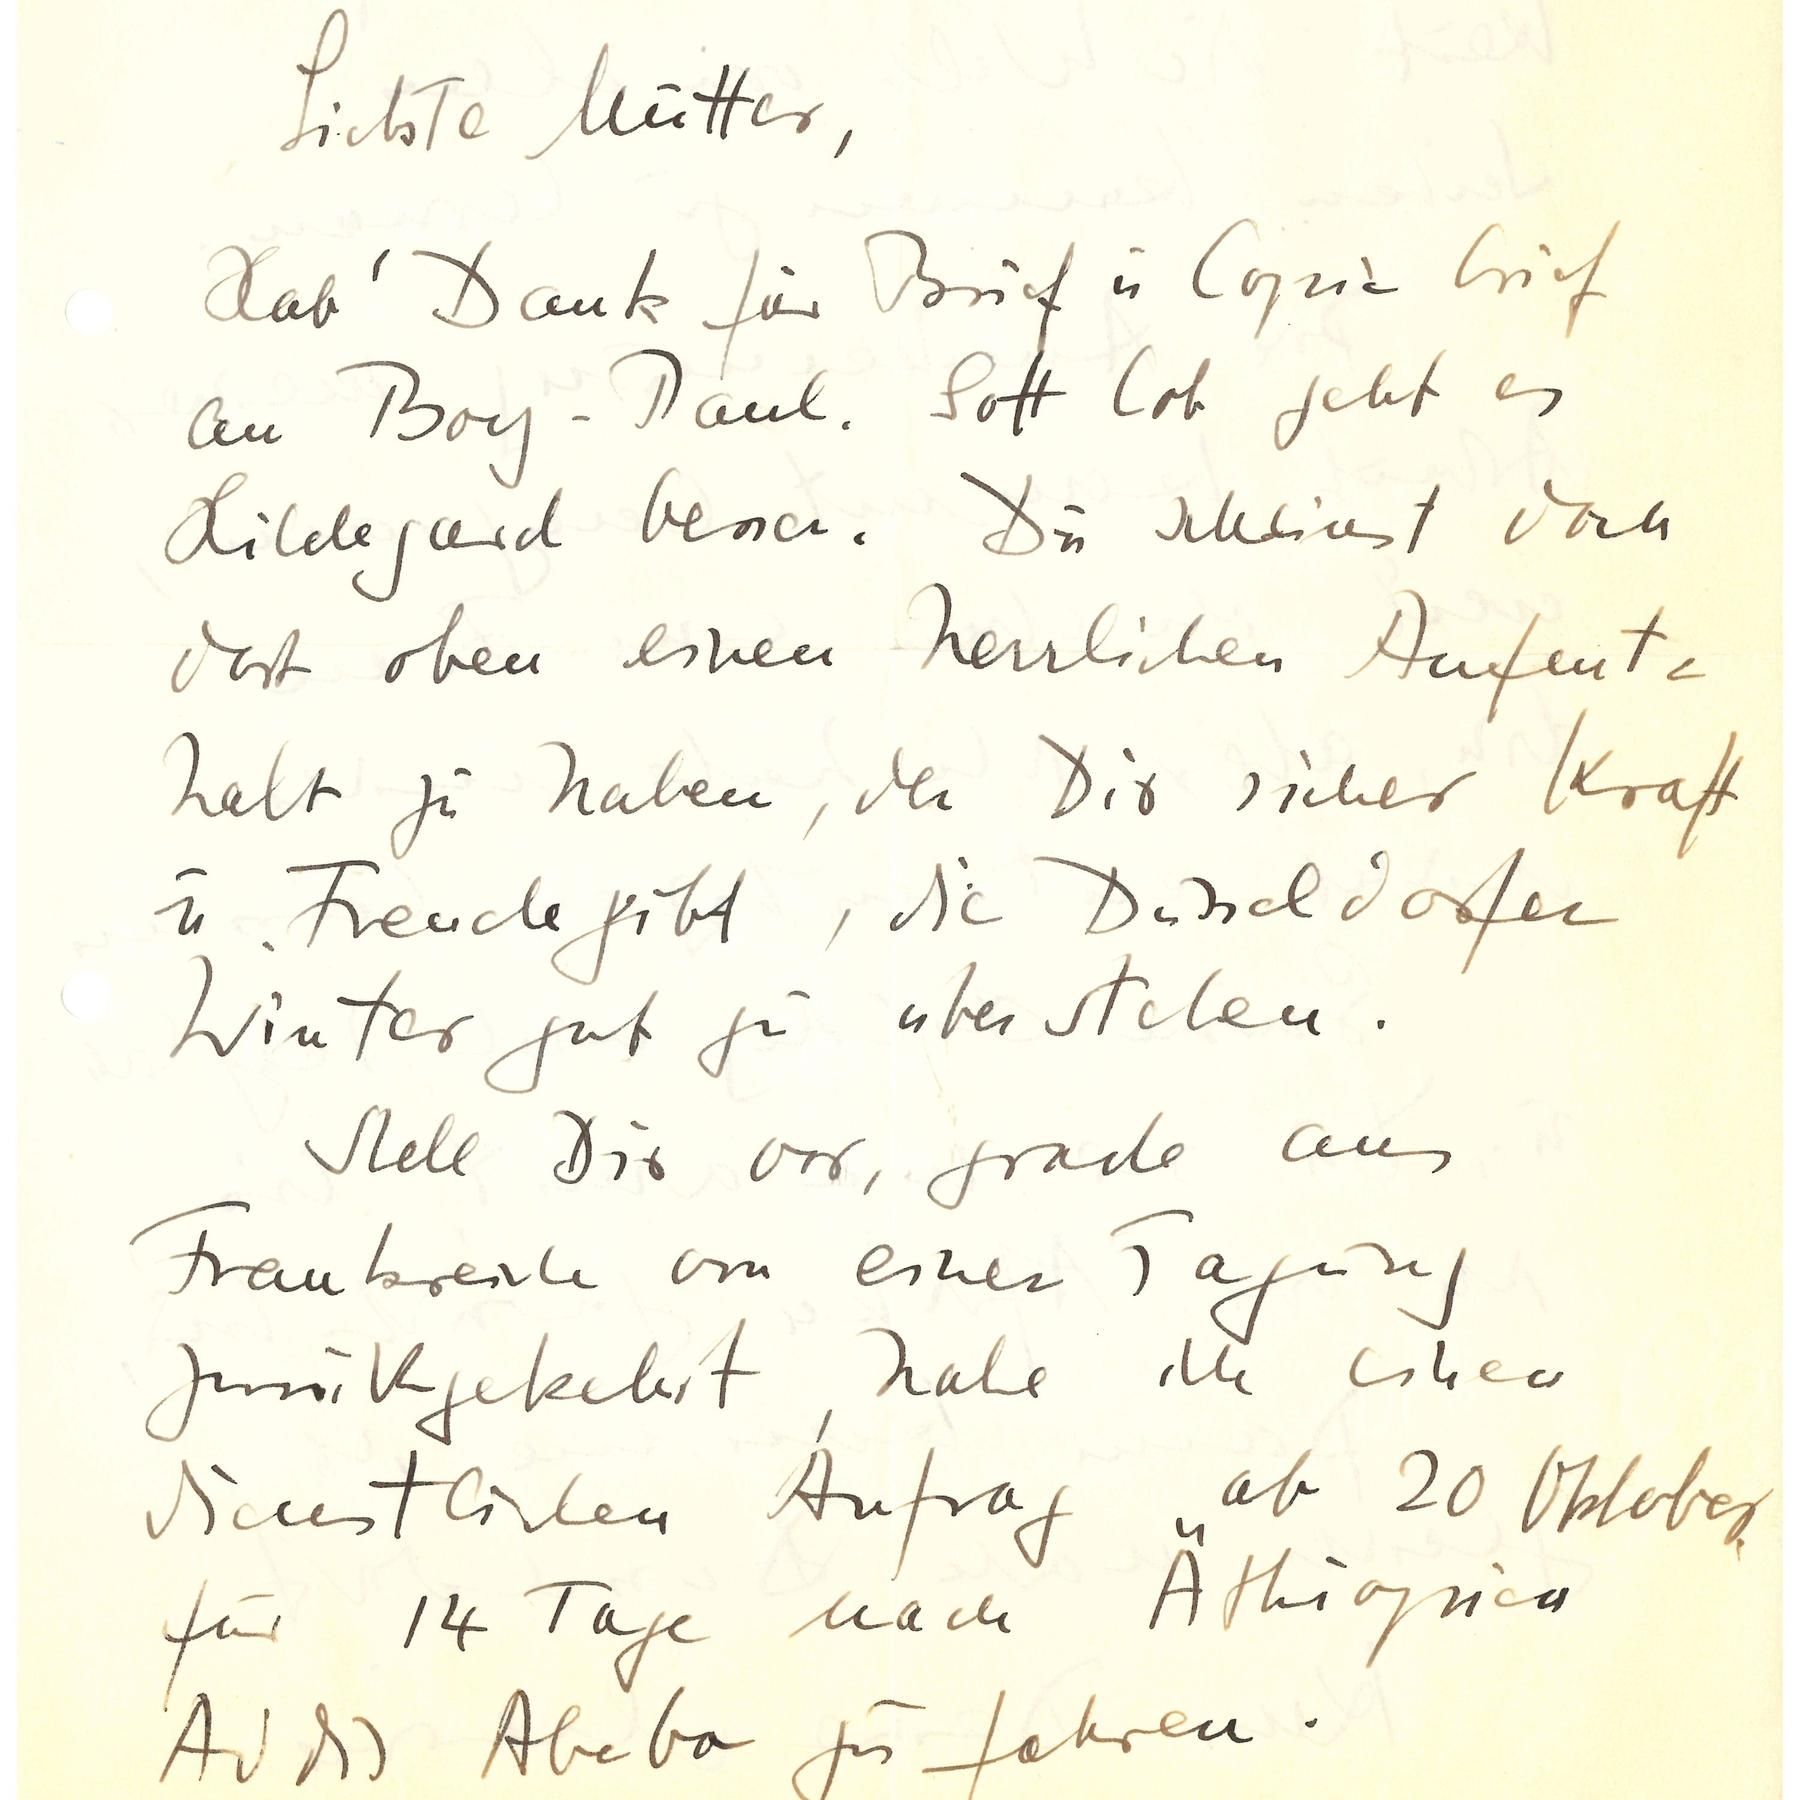 Liebste Mutter,
Hab' Dank für Brief u Copie brief
an Boy-Paul. Gott Lob geht es
Hildegard besser. Du scheinst doch
dort oben einen herrlichen Aufent=
halt zu haben, der Dir sicher Kraft
u Freude gibt, die Düsseldorfer
Winter gut zu überstehen.
Stell Dir vor, grade aus
Frankreich von einer Tagung
zurückgekehrt, habe ich einen
dienstlichen Aufrag ab 20 Oktober
für 14 Tage nach Äthiopien
Addis Abeba zu fahren.